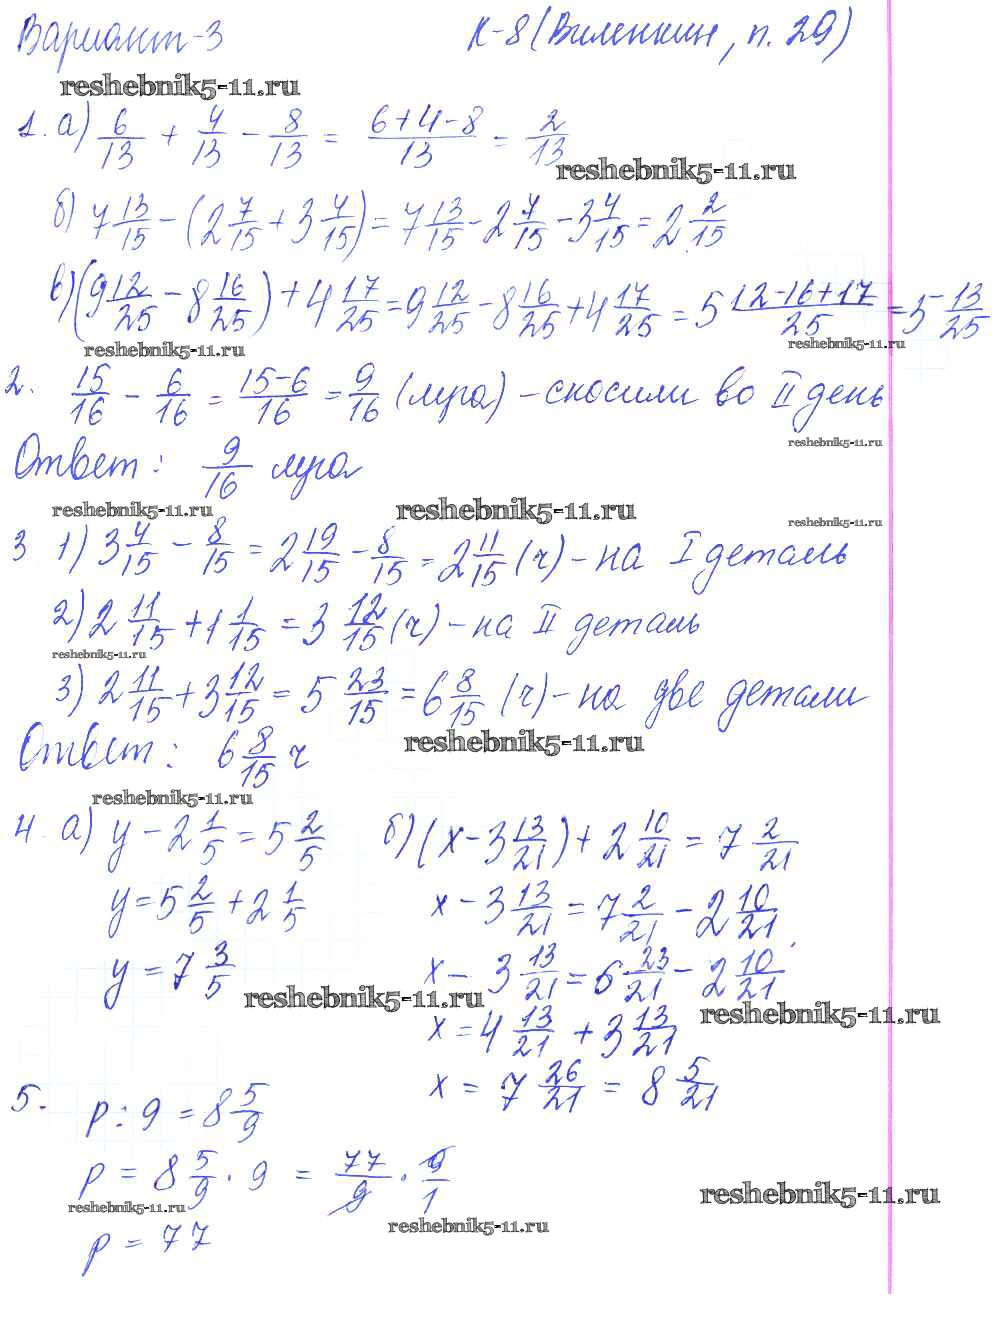 Вариант-3 К-8 (Виленкин, п. 29)
reshebnik5-11.ru
1. а) 6/13 + 4/13 - 8/13 = (6+4-8)/13 = 2/13
reshebnik5-11.ru
б) 7 13/15 - (2 7/15 + 3 4/15) = 7 13/15 - 2 7/15 - 3 4/15 = 2 2/15
в) (9 12/25 - 8 16/25) + 4 17/25 = 9 12/25 - 8 16/25 + 4 17/25 = 5 (12-16+17)/25 = 5 13/25
reshebnik5-11.ru reshebnik5-11.ru
2. 15/16 - 6/16 = (15-6)/16 = 9/16 (луга) - скосили во II день
reshebnik5-11.ru
Ответ: 9/16 луга
reshebnik5-11.ru reshebnik5-11.ru reshebnik5-11.ru
3 1) 3 4/15 - 8/15 = 2 19/15 - 8/15 = 2 11/15 (ч) - на I деталь
2) 2 11/15 + 1 1/15 = 3 12/15 (ч) - на II деталь
reshebnik5-11.ru
3) 2 11/15 + 3 12/15 = 5 23/15 = 6 8/15 (ч) - на две детали
Ответ: 6 8/15 ч
reshebnik5-11.ru
reshebnik5-11.ru
4. а) y - 2 1/5 = 5 2/5 б) (x - 3 13/21) + 2 10/21 = 7 2/21
y = 5 2/5 + 2 1/5 x - 3 13/21 = 7 2/21 - 2 10/21
y = 7 3/5 x - 3 13/21 = 6 23/21 - 2 10/21
reshebnik5-11.ru reshebnik5-11.ru
x = 4 13/21 + 3 13/21
x = 7 26/21 = 8 5/21
5. p : 9 = 8 5/9
p = 8 5/9 · 9 = 77/9 · 9/1
reshebnik5-11.ru reshebnik5-11.ru reshebnik5-11.ru
p = 77